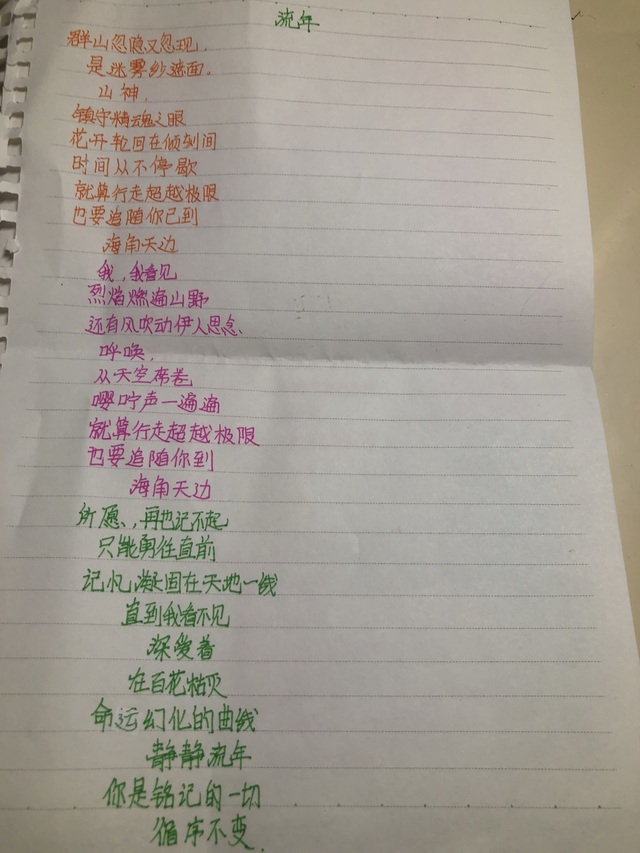 流年
群山忽隐又忽现.
是迷雾纱遮面.
山神,
镇守精魂之眼
花开轮回在倾刻间
时间从不停歇
就算行走超越极限
也要追随你已到
海角天边
我,我看见
烈焰燃遍山野
还有风吹动伊人思念、
呼唤,
从天空席卷
嘤咛声一遍遍
就算行走超越极限
也要追随你到
海角天边
所愿、,再也记不起
只能勇往直前
记忆凝固在天地一线
直到我看不见
深爱着
在百花枯灭
命运幻化的曲线
静静流年
你是铭记的一切
循序不变.